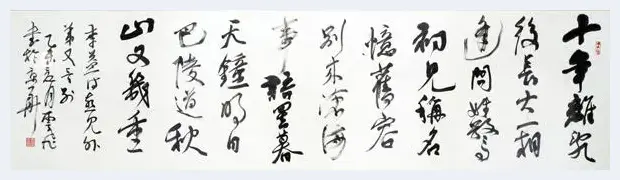 十年離亂
後長大一相
逢問姓驚
初見稱名
憶舊容
別來滄海
事語罷暮
天鐘明日
巴陵道秋
山又幾重
李益詩喜見外
弟又言別
乙未月雲
書於京華